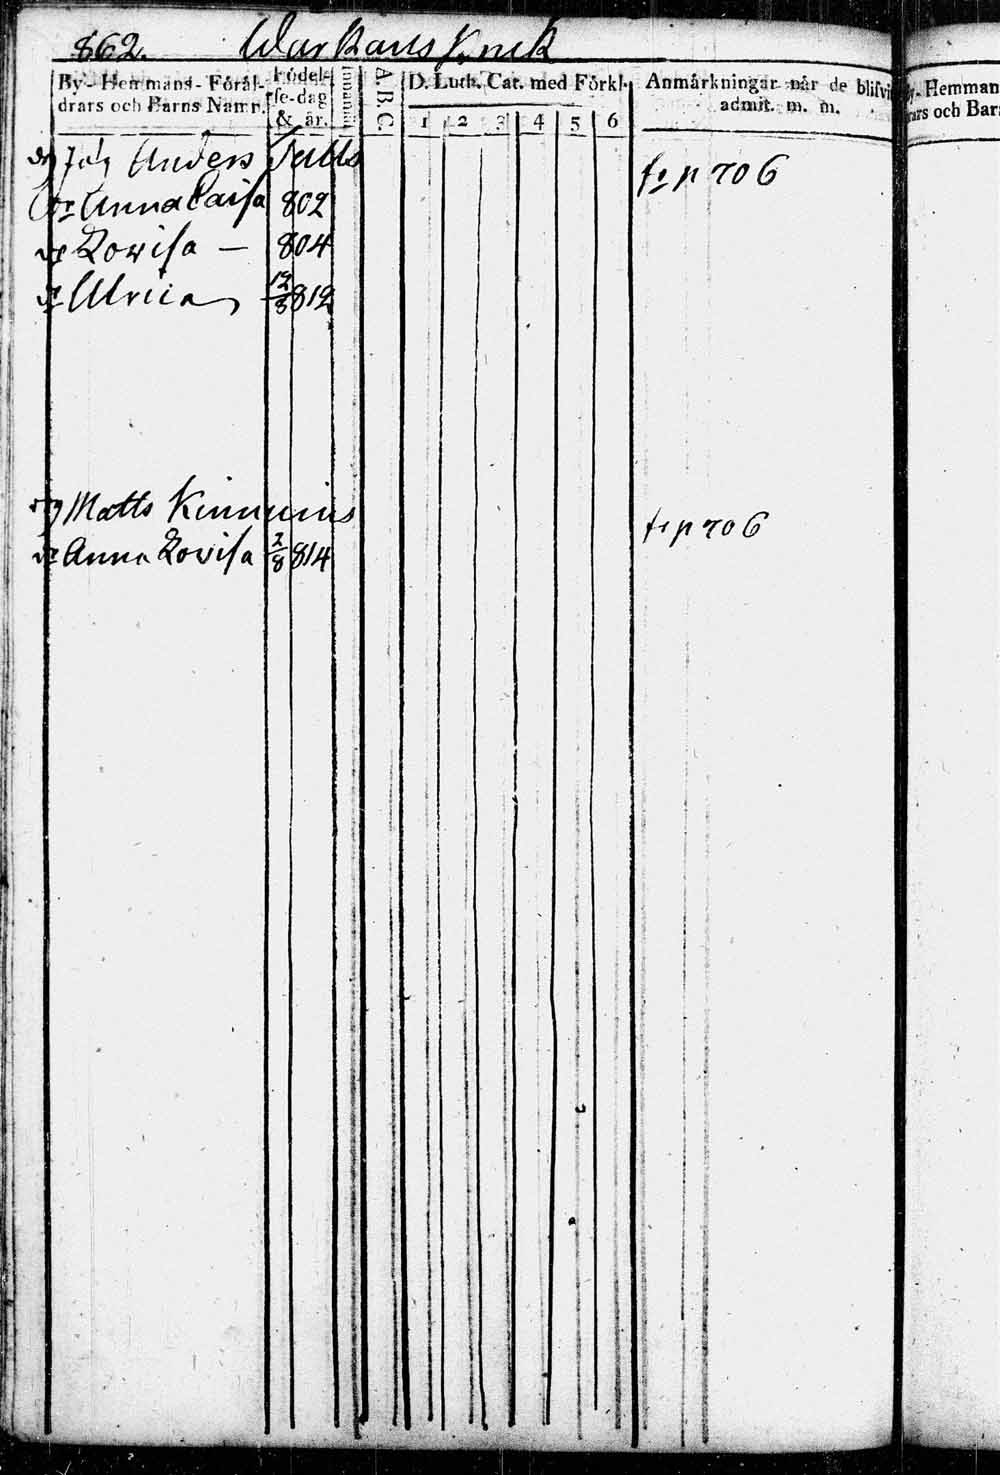 862. Warkaus bruk
By- Hemmans- Föräl-
drars och Barns Namn.
Födel-
se-dag
& år.
A.B.C.
D. Luth. Cat. med Förkl.
1 2 3 4 5 6
Anmärkningar når de blifvit
admit. m. m.
Anders
Anna Caisa 802
Lovisa — 804
Ulrica 12/3 812
Matts Kinnunus
Anna Lovisa 2/8 814
p 706
p 706
Hemman
drars och Bar